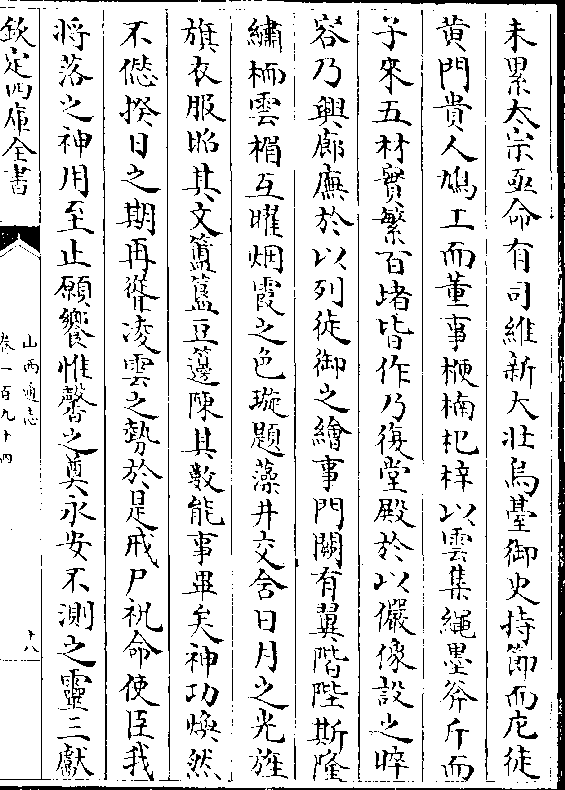 未累太宗亟命有司維新大壯烏臺御史持節而庀徒
黄門貴人鳩工而董事楩楠杞梓以雲集繩墨斧斤而
子來五材實繁百堵皆作乃復堂殿於以儼像設之睟
容乃興廊廡於以列徒御之繪事門闕有翼階陛斯隆
繡栭雲楣互曜烟霞之色璇題藻井交含日月之光旌
旗衣服昭其文簠簋豆籩陳其數能事畢矣神功煥然
不愆揆日之期再聳凌雲之勢於是戒尸祝命使臣我
將落之神用至止願饗惟馨之奠永安不測之靈三獻
欽定四庫全書
山西通志
卷一百九十四
十八